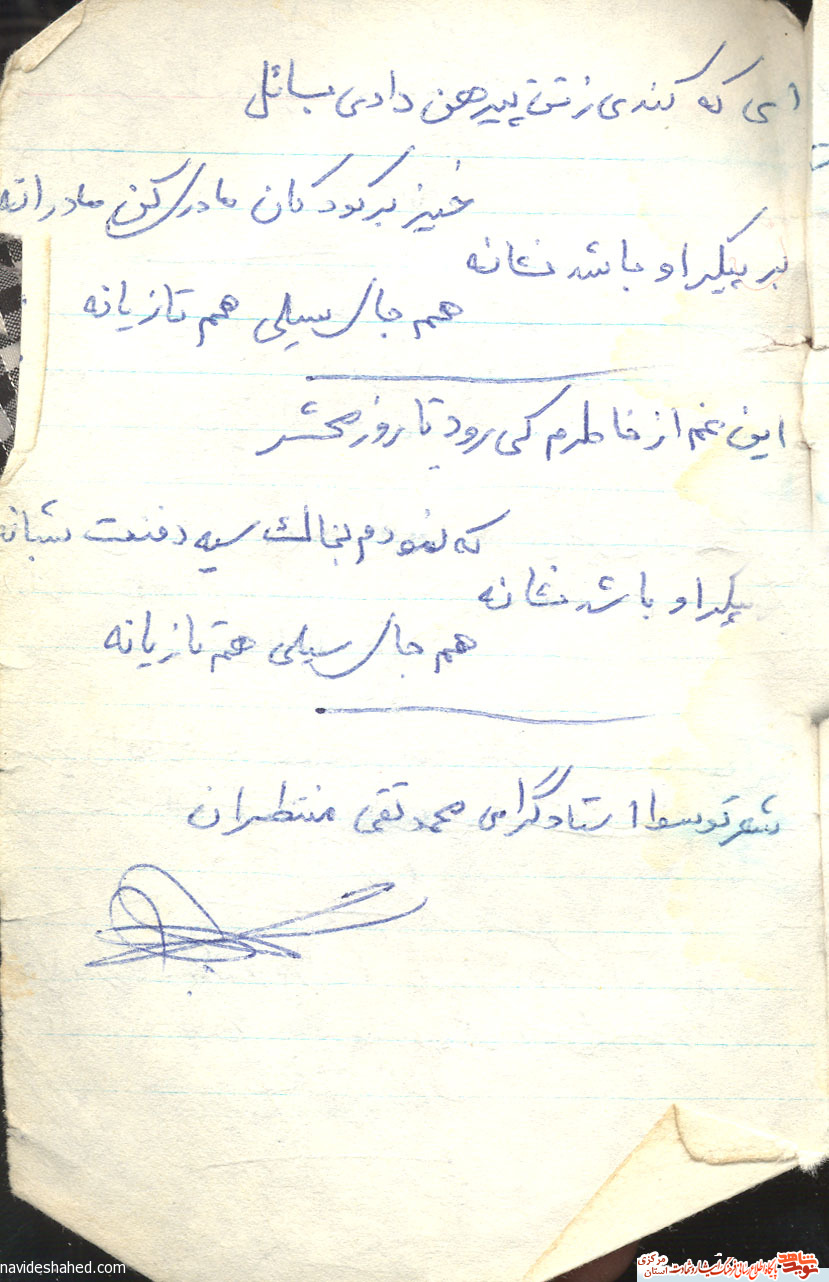 ای که کندی ز تن پیرهن دادی بسائل
خیز بر کودکان مادری کن مادرانه
بر پیکر او باشد نشانه
هم جای سیلی هم تازیانه
این غم از خاطرم کی رود تا روز محشر
که نمودم بخاک سیه دفنت شبانه
پیکر او باشد نشانه
هم جای سیلی هم تازیانه
شعر توسط استاد گرامی محمد تقی منتظران
navideshahed.com
نوید شاهد
پایگاه اطلاع رسانی فرهنگ ایثار و شهادت استان مرکزی